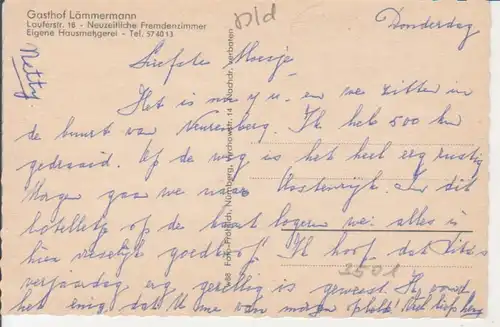 Gasthof Lämmermann
Lauferstr. 16 - Neuzeitliche Fremdenzimmer
Eigene Hausmetzgerei - Tel. 574013
Donderdag
Netty
Liefste Moesje,
Het is nu 7 u. en we zitten in
de buurt van Neurenberg. Ik heb 500 km
gedraaid. Op de weg is het heel erg rustig
Morgen gaan we naar Oostenrijk. In dit
hotelletje op de kaart logeren we. alles is
hier vreselijk goedkoop! Ik hoop dat
verjaardag erg gezellig is geweest. Ik vond
het enig dat U me van morgen opbelde! Veel liefs
Foto-Fröhlich, Nürnberg, Virchowstr. 14 Nachdr. verboten
2501